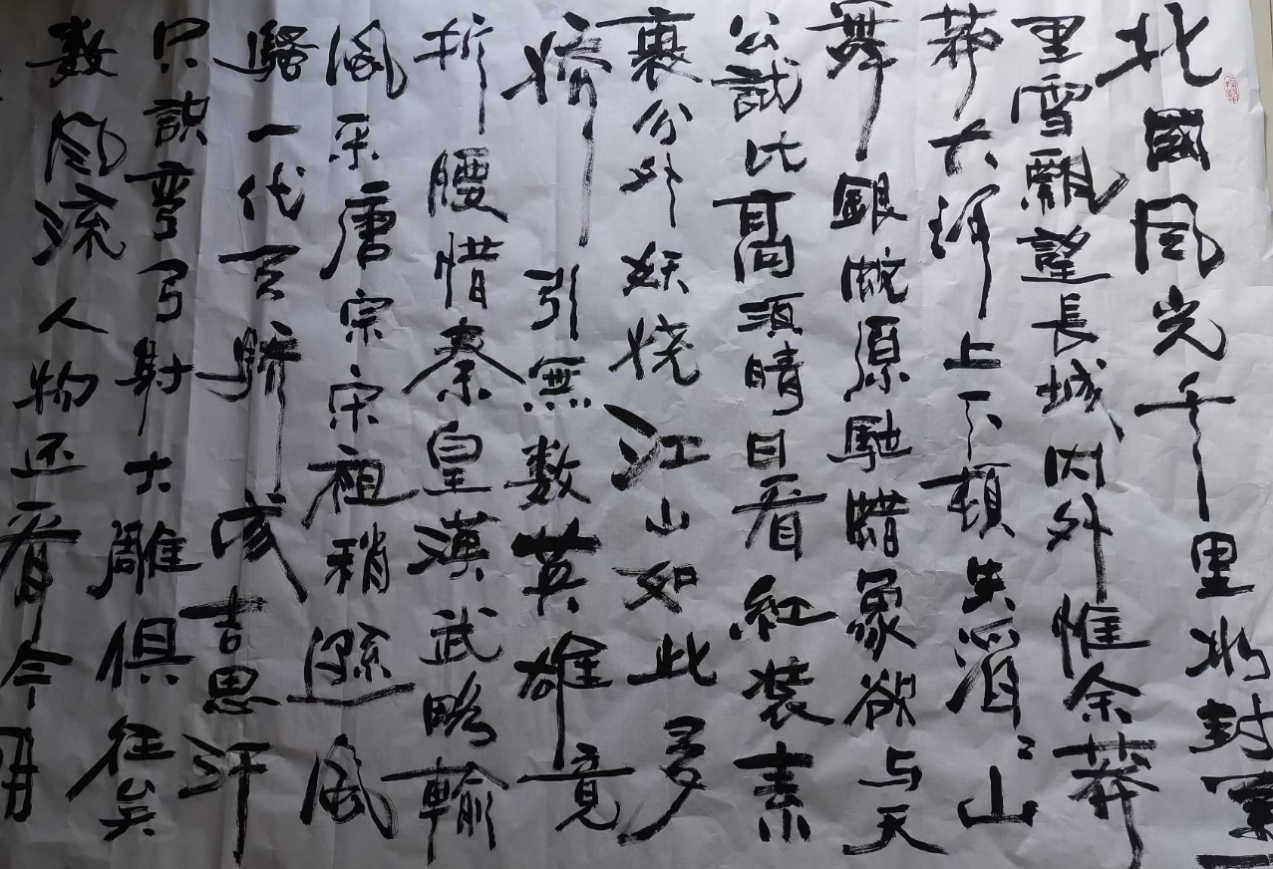 北國風光千里冰封
里雪飄望長城内外惟余莽
莽大河上下頓失滔〻山
舞銀蛇原馳蜡象欲与天
公試比高須晴日看紅装素
裹分外妖娆江山如此多
嬌引無数英雄竟
折腰惜秦皇漢武略輸
風采唐宗宋祖稍遜風
騷一代天驕成吉思汗
只識彎弓射大雕俱往矣
数風流人物还看今